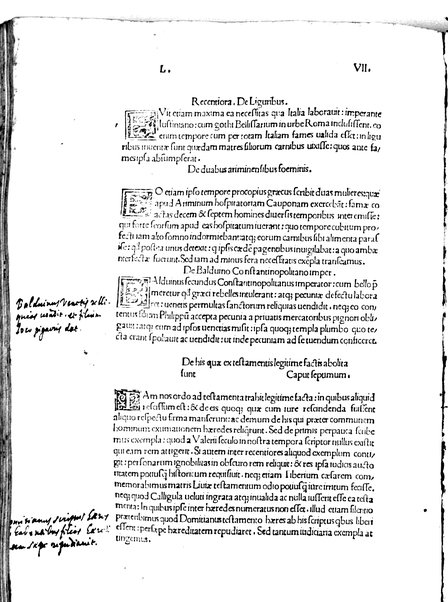 L. VII.
Recentiora. De Liguribus.
Vit etiam maxima ea necessitas qua Italia laborauit: imperante
Iustiniano: cum gothi Bellissarium in urbe Roma inclusissent. eo
enim tempore cum per totam Italiam fames ualida esset: in ligu
ribus inuentæ sunt quædam matres filiorum carnibus usæ: quos ante fa-
mes ipsa absumpserat.
De duabus ariminensibus foeminis.
EO etiam ipso tempore procopius græcus scribit duas mulieres quæ
apud Ariminum hospitatoriam Cauponam exercebāt: famæ co
actas decem & septem homines diuersis temporibus interemisse:
qui forte seorsum apud eas hospitatum iuerant: quo tempore cubitum pro-
iecti iam alto somno indormiebant: atq; eorum carnibus sibi alimenta paras
se: q postea unus detexit: q ipsis cæde pagenibus inuigilabat: a quo ambæ
interfectæ fuerunt. Sed iam ad minus fera necessitatis exēpla transeamus.
De Balduino Constantinopolitano imper.
BAlduinus secundus Constantinopolitanus imperator: cum bello p
meretur qd græci rebelles intulerant: atq; pecuniæ defectu labora
ret: uenetis permultas sanctorum reliquias uendidit. neq; eo con-
tentus filium Philippū accepta pecunia a priuatis mercatoribus pignori obli
gauit: atq; eum ad ipsos uenetias misit: ipsa quoq; templa plumbo quo te-
cta erant spoliauit ac uendidit: ut inde pecuniam ad se tuendum conficeret.
De his quæ ex testamentis legitime factis abolita
sunt Caput septimum.
IAm nos ordo ad testamenta trahit legitime facta: in quibus aliquid
recessum est: & de eis quoq; quæ cum iure rescindenda fuissent
aliquo respectu firma manserunt: ac demum de his qui præter communem
hominum existimationem hæredes reliqrunt. Sed de primis perpauca scribe
mus exempla: quod a Valerii seculo in nostra tempora scriptor nullus exstitit
qui eam rem attigerit. Si autem inter recentiores aliquod exemplum conti-
git: personarum ignobilitas in obscuro rem reliquit: & res ipsa iudiciis austo
ritatem potius q historicum requisiuit. neq; etiam Liberium cæsarem com-
memorabimus matris Liuiæ testamentum odio potius q iure irritum fecisse.
neq; quod Calligula uelut ingrata atq; inualida ac nulla iussit esse ea testa
menta: In quibus ipse inter hæredes numeratus non esset. illud etiam silentio
præteribimus quod Domitianus testamento hæres ab his scriptus qbus liberi
essent: persæpe hæreditatem repudiaret. Sed tantum iudiciaria exempla at
tingemus.
Balduinus
filium